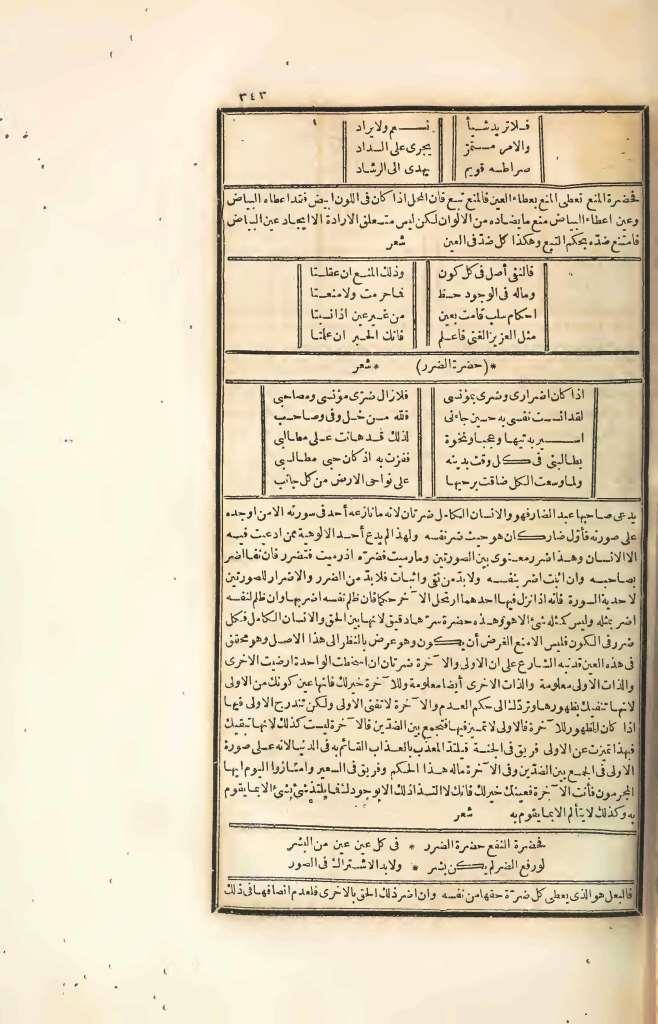 ٣٤٣
فلا تريد شيأ نسم ولا يراد
والامر مستمرّ يجرى على السداد
صراطه قويم يهدى الى الرشاد
فحضرة المنع تعطى المنع بعطاء العين فالمنع تبع فان المحل اذا كان فى اللون ابيض فقد اعطاه البياض
وعين اعطاء البياض منع ما يضاده من الالوان لكن ليس متعلق الارادة الا ايجاد عين البياض
فامتنع ضدّه بحكم التبع وهكذا كل ضدّ فى العين شعر
فالنفى أصل فى كل كون وذلك المنع ان عقلتا
وماله فى الوجود حظ فما حرمت ولا منعتا
احكام سلب قامت بعين من غير عين اذا نسبتا
مثل العزيز الغنىّ فاعلم فانك الحبر ان علمتا
*(حضرة الضرر)* شعر
اذا كان اضرارى وضرى بمؤنسى فلا زال ضرّى مؤنسى ومصاحبى
لقد انست نفسى به حين جاءنى فقه من خل وفى وصاحب
اسير به تيها وعجبا ونخوة لذلك قد هانت على مطالبى
يطالبنى فى كل وقت بدينه ففزت به اذ كان حبى مطالبى
ولما وسعت الكل ضاقت برحبها على نواحى الارض من كل جانب
يدعى صاحبها عبد الضار فهو والانسان الكامل ضرتان لانه ما نازعه أحد فى سورته الا من اوجده
على صورته فأوّل ضار كان هو حيث ضر نفسه ولهذا لم يدع أحد الالوهية ممن ادعيت فيه
الا الانسان وهذا ضرر معنوى بين الصورتين وما رميت فضرّه اذ رميت فتضرر فان نفى اضر
بصاحبه وان اثبت اضر بنفسه ولا بدّ من نفى واثبات فلا بدّ من الضرر والاضرار للصورتين
لاحدية الصورة فانه اذا نزل فيها احدهما ارتحل الآخر حكما فان ظلم نفسه اضر بها وان ظلم لنفسه
اضر بمثله وليس كمثله شئ الا هو وهذه حضرة سرّها دقيق لانها بين الحق والانسان الكامل فكل
ضرر فى الكون فليس الا منع الغرض أن يكون وهو عرض بالنظر الى هذا الاصل وهو محقق
فى هذه العين قد نبه الشارع على ان الاولى والآخرة ضرتان ان اسخطت الواحدة ارضيت الاخرى
والذات الاولى معلومة والذات الاخرى أيضا معلومة وللآخرة خير لك فانها عين كونك من الاولى
لانها تنفيك بظهورها وتردّك الى حكم العدم والآخرة لا تفنى الاولى ولكن تندرج الاولى فيها
اذا كان الظهور للآخرة فالاولى لا تميز فيها فتجمع بين الضدّين فالآخرة ليست كذلك لانها تبقيك
فبهذا تميزت عن الاولى فريق فى الجنة فيلتذ المعذب بالعذاب القائم به فى الدنيا لانه على صورة
الاولى فى الجمع بين الضدّين وفى الآخرة ماله هذا الحكم وفريق فى السعير وامتازوا اليوم ايها
المجرمون فأنت الآخرة فعينك خير لك فانك لا التذاذ لك الا بوجودك فما يلتذ شئ بشئ الا بما يقوم
به وكذلك لا يتألم الا بما يقوم به شعر
فحضرة النفع حضرة الضرر * فى كل عين عين من البشر
لو رفع الضر لم يكن بشر * ولا بد الاشتراك فى الصور
فالبعل هو الذى يعطى كل ضرّة حقها من نفسه وان اضر ذلك الحق بالاخرى فلعدم انصافها فى ذلك